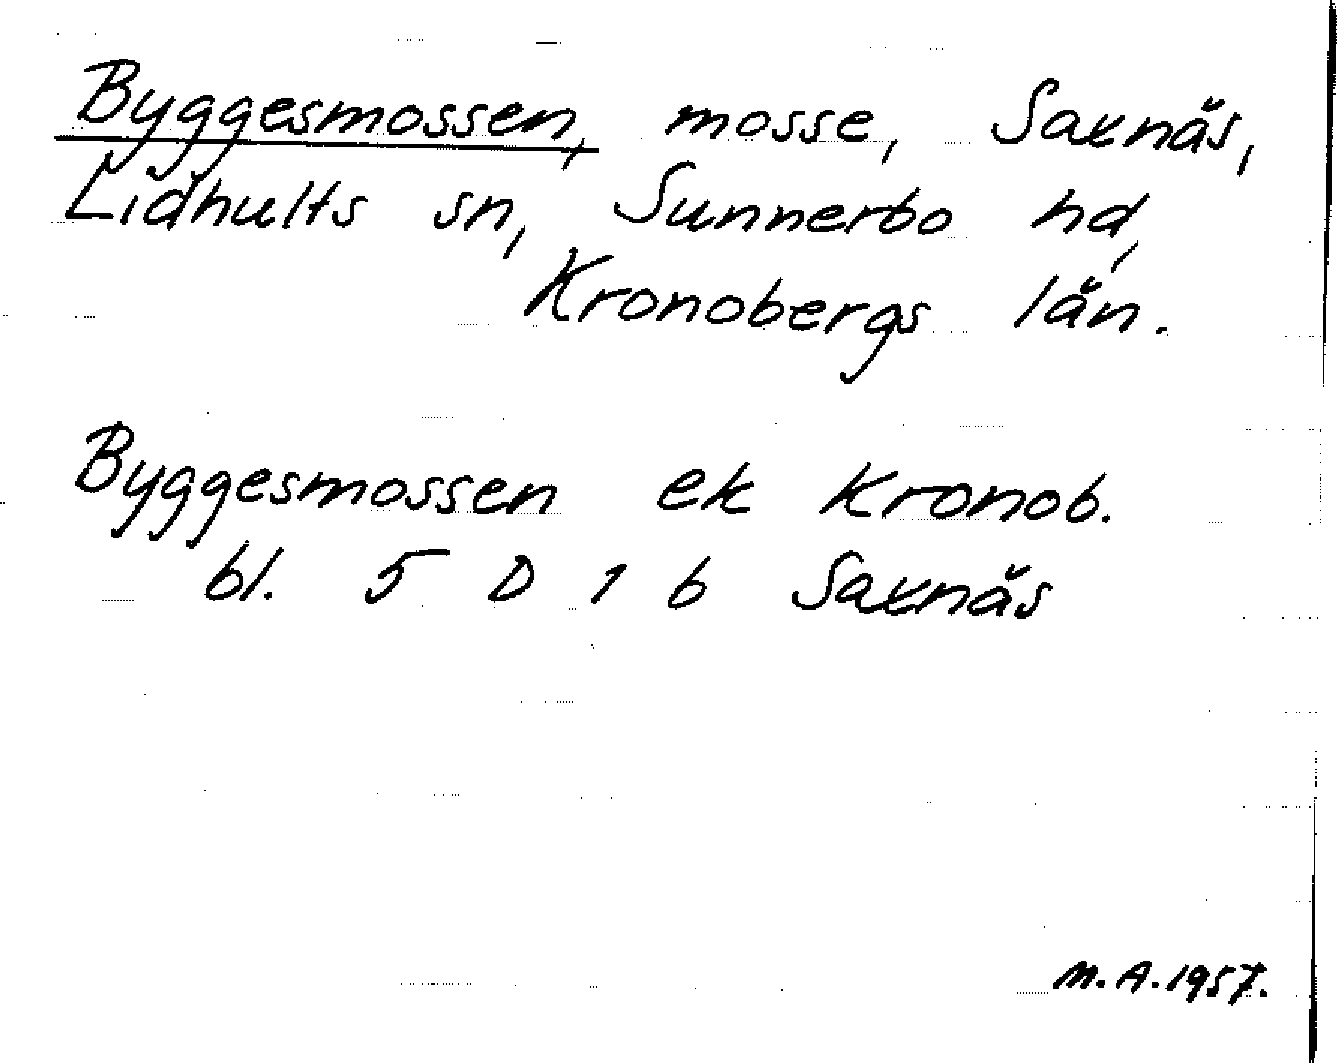 Byggesmossen, mosse, Saxnäs,
Lidhults sn, Sunnerbo hd,
Kronobergs län.
Byggesmossen ek Kronob.
bl. 5 D 1 b Saxnäs
M.A.1957.